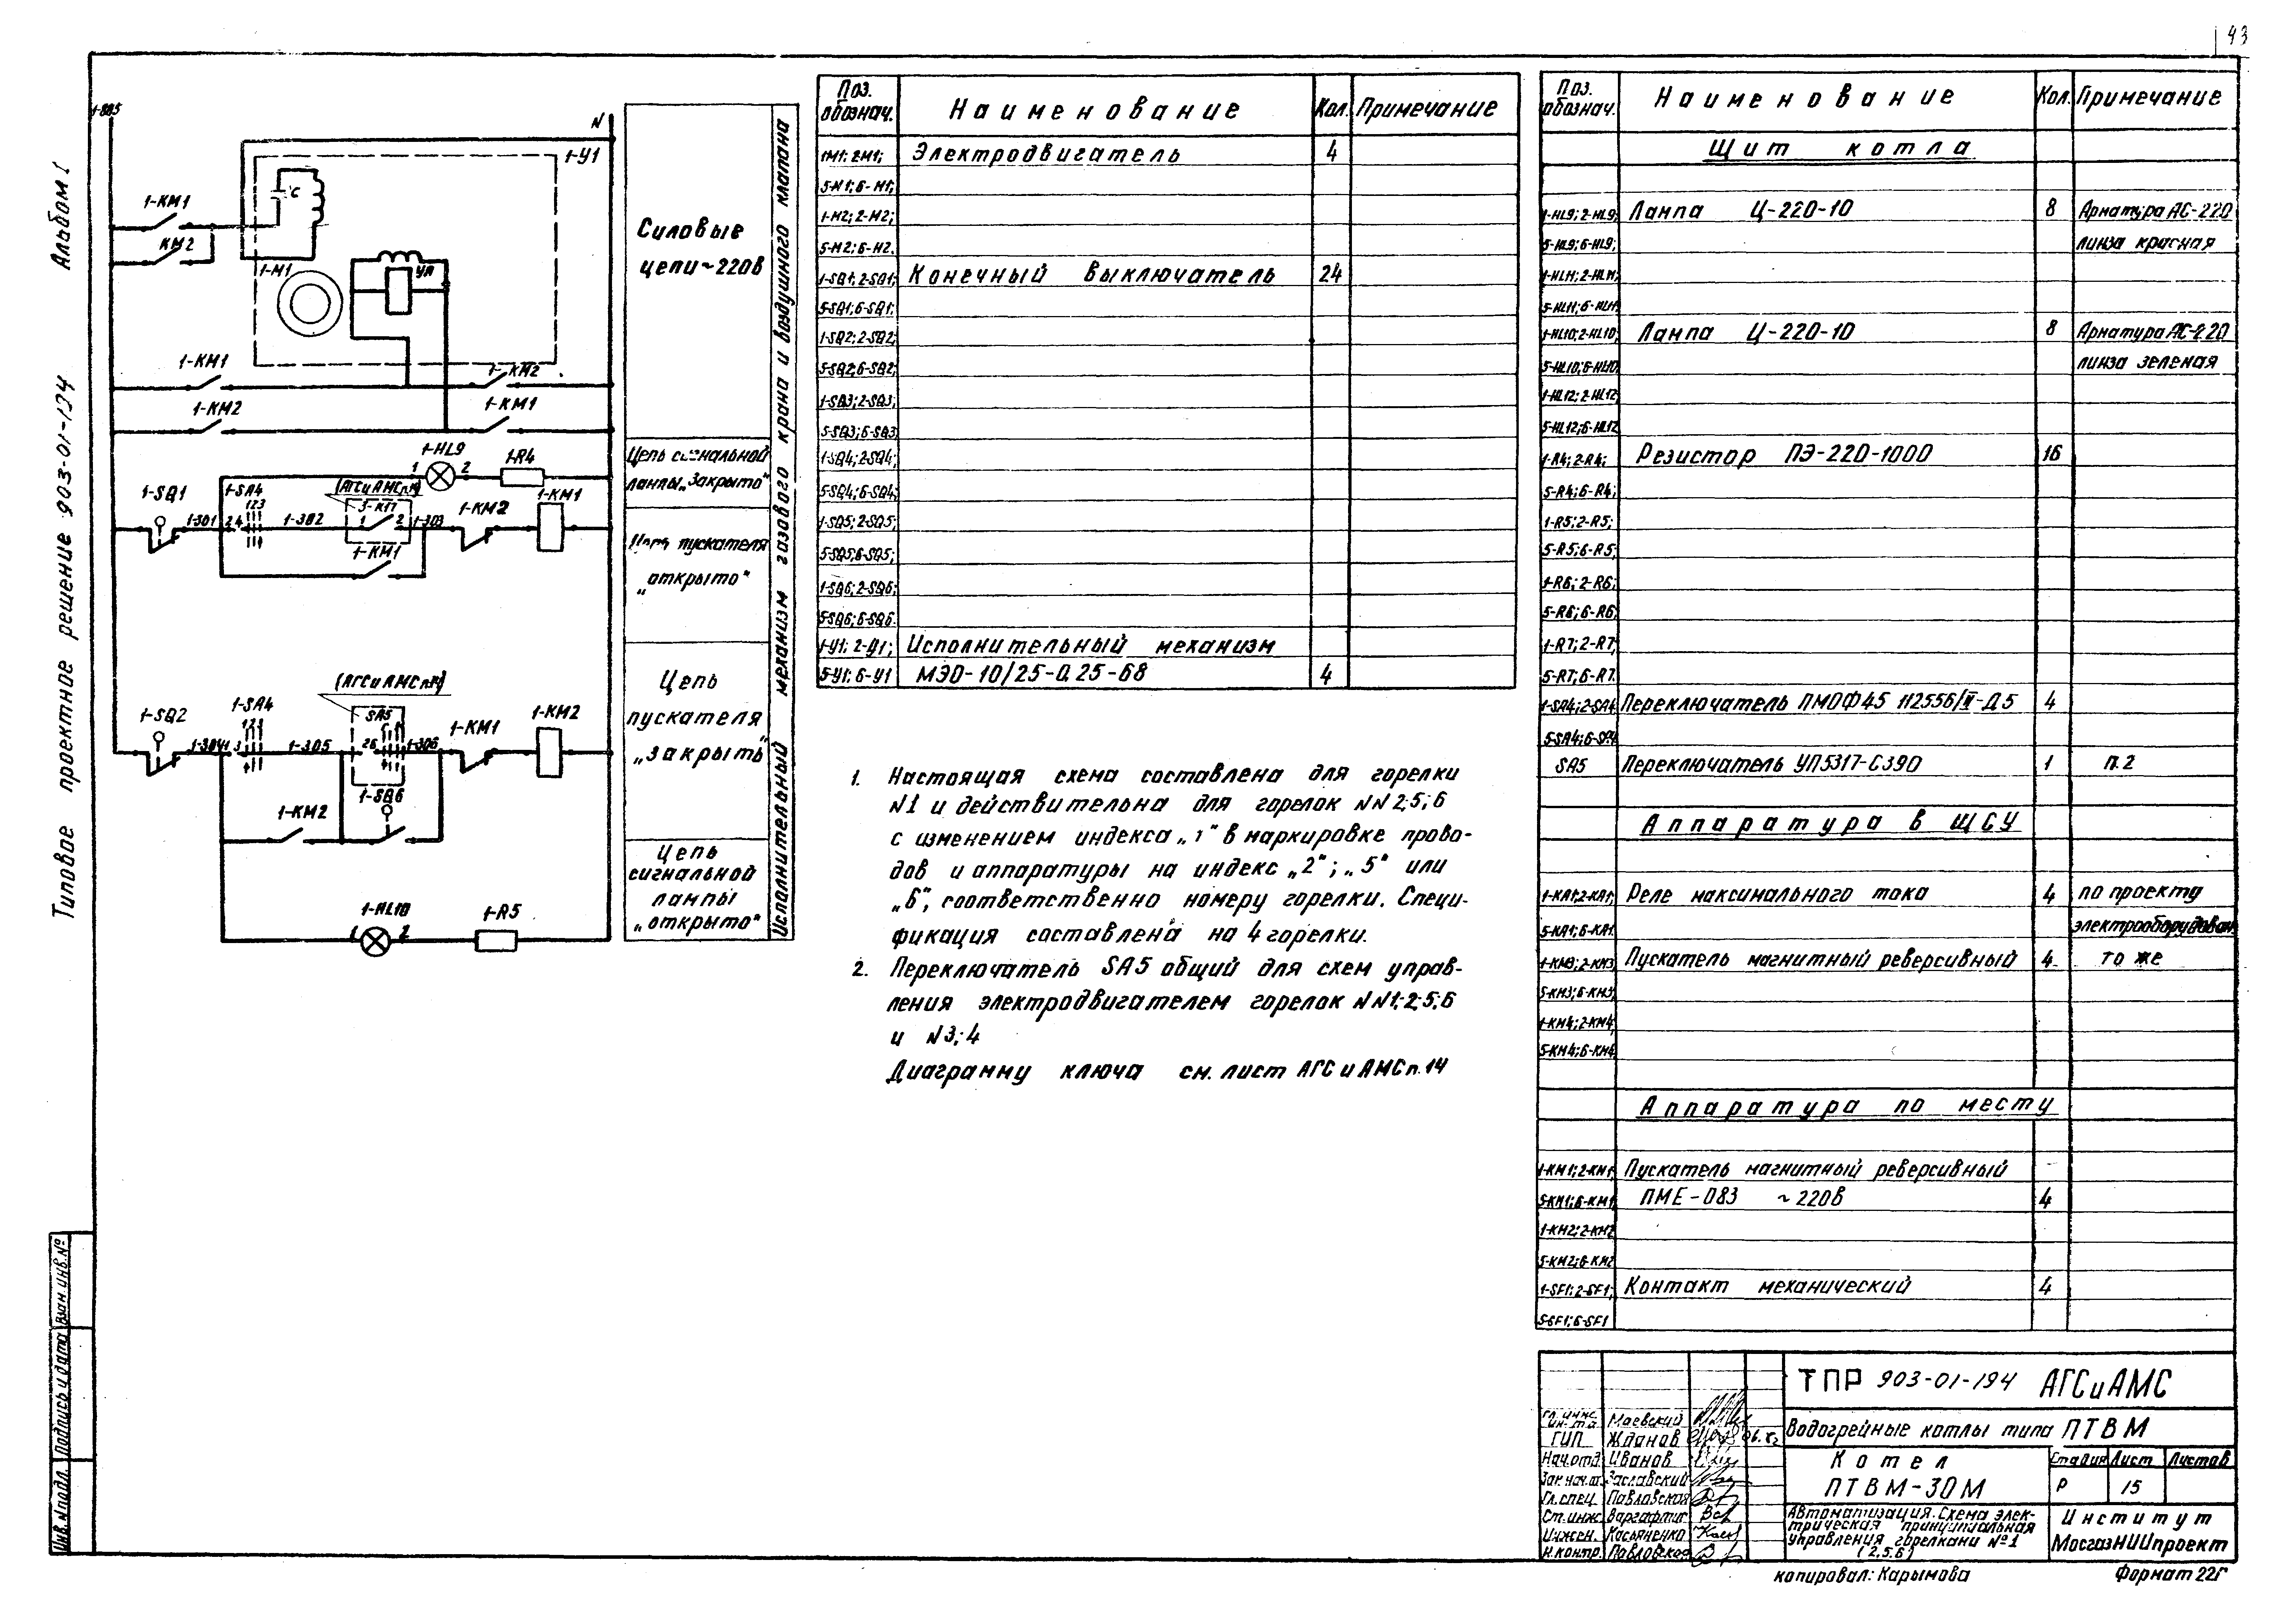 43
Альбом I
Типовое проектное решение 903-01-194
Инв.№подл. Подпись и дата Взам.инв.№
1-805
N
1-У1
С
1-КМ1
КМ2
1-М1
УП
1-КМ1
1-КМ2
1-КМ2
1-КМ1
1-HL9
1 2
1-R4
(АГСиАМС п.14)
1-SQ1
1-SA4
123
3-КП
1-КМ2
1-КМ1
1-301
24
1-302
1 2
1-303
1-КМ1
(АГСиАМС п.14)
1-SQ2
1-SA4
SA5
1-КМ1
1-КМ2
1-304
3
1-305
26
1-306
1-SQ6
1-КМ2
1-HL10
1 2
1-R5
Силовые
цепи ~ 220в
Цепь сигнальной
лампы „Закрыто"
Цепь пускателя
„открыто"
Цепь
пускателя
„закрыть"
Цепь
сигнальной
лампы
„открыто"
Исполнительный механизм газового крана и воздушного клапана
Поз. обознач. Наименование Кол. Примечание
1М1; 2М1; Электродвигатель 4
5-М1; 6-М1;
1-М2; 2-М2;
5-М2; 6-М2.
1-SQ1; 2-SQ1; Конечный выключатель 24
5-SQ1; 6-SQ1;
1-SQ2; 2-SQ2;
5-SQ2; 6-SQ2;
1-SQ3; 2-SQ3;
5-SQ3; 6-SQ3
1-SQ4; 2-SQ4;
5-SQ4; 6-SQ4;
1-SQ5; 2-SQ5;
5-SQ5; 6-SQ5;
1-SQ6; 2-SQ6;
5-SQ6; 6-SQ6.
1-У1; 2-У1; Исполнительный механизм
5-У1; 6-У1 МЭО-10/25-0.25-68 4
1. Настоящая схема составлена для горелки
N1 и действительна для горелок NN 2;5;6
с изменением индекса „1" в маркировке прово-
дов и аппаратуры на индекс „2"; „5" или
„6", соответственно номеру горелки. Специ-
фикация составлена на 4 горелки.
2. Переключатель SA5 общий для схем управ-
ления электродвигателем горелок NN1;2;5;6
и N3;4
Диаграмму ключа см. лист АГС и АМС п.14
Поз. обознач. Наименование Кол. Примечание
Щит котла
1-HL9; 2-HL9; Лампа Ц-220-10 8 Арматура АС-220
5-HL9; 6-HL9; линза красная
1-HL11; 2-HL11;
5-HL11; 6-HL11
1-HL10; 2-HL10; Лампа Ц-220-10 8 Арматура АС-220
5-HL10; 6-HL10 линза зеленая
1-HL12; 2-HL12
5-HL12; 6-HL12
1-R4; 2-R4; Резистор ПЭ-220-1000 16
5-R4; 6-R4;
1-R5; 2-R5;
5-R5; 6-R5;
1-R6; 2-R6;
5-R6; 6-R6;
1-R7; 2-R7;
5-R7; 6-R7.
1-SA4; 2-SA4 Переключатель ПМОФ45 112556/II-Д5 4
5-SA4; 6-SA4
SA5 Переключатель УП5317-С390 1 п.2
Аппаратура в ЩСУ
1-КА1; 2-КА1; Реле максимального тока 4 по проекту
5-КА1; 6-КА1. электрооборудован.
1-КМ3; 2-КМ3 Пускатель магнитный реверсивный 4 то же
5-КМ3; 6-КМ3
1-КМ4; 2-КМ4
5-КМ4; 6-КМ4
Аппаратура по месту
1-КМ1; 2-КМ1 Пускатель магнитный реверсивный
5-КМ1; 6-КМ1 ПМЕ-083 ~220в 4
1-КМ2; 2-КМ2
5-КМ2; 6-КМ2
1-SF1; 2-SF1; Контакт механический 4
5-SF1; 6-SF1
ТПР 903-01-194 АГСиАМС
Водогрейные котлы типа ПТВМ
Котел
ПТВМ-30М
Стадия Лист Листов
Р 15
Автоматизация. Схема элек-
трическая принципиальная
управления горелками №1
(2,5,6)
Институт
МосгазНИИпроект
Гл. инж. ин-та Маевский
ГИП Жданов
Нач.отд. Иванов
Зам.нач.от. Заславский
Гл.спец. Павловская
Ст.инж. Варгафтиг
Инжен. Касьяненко
Н.контр. Павловская
копировал: Карымова Формат 22Г